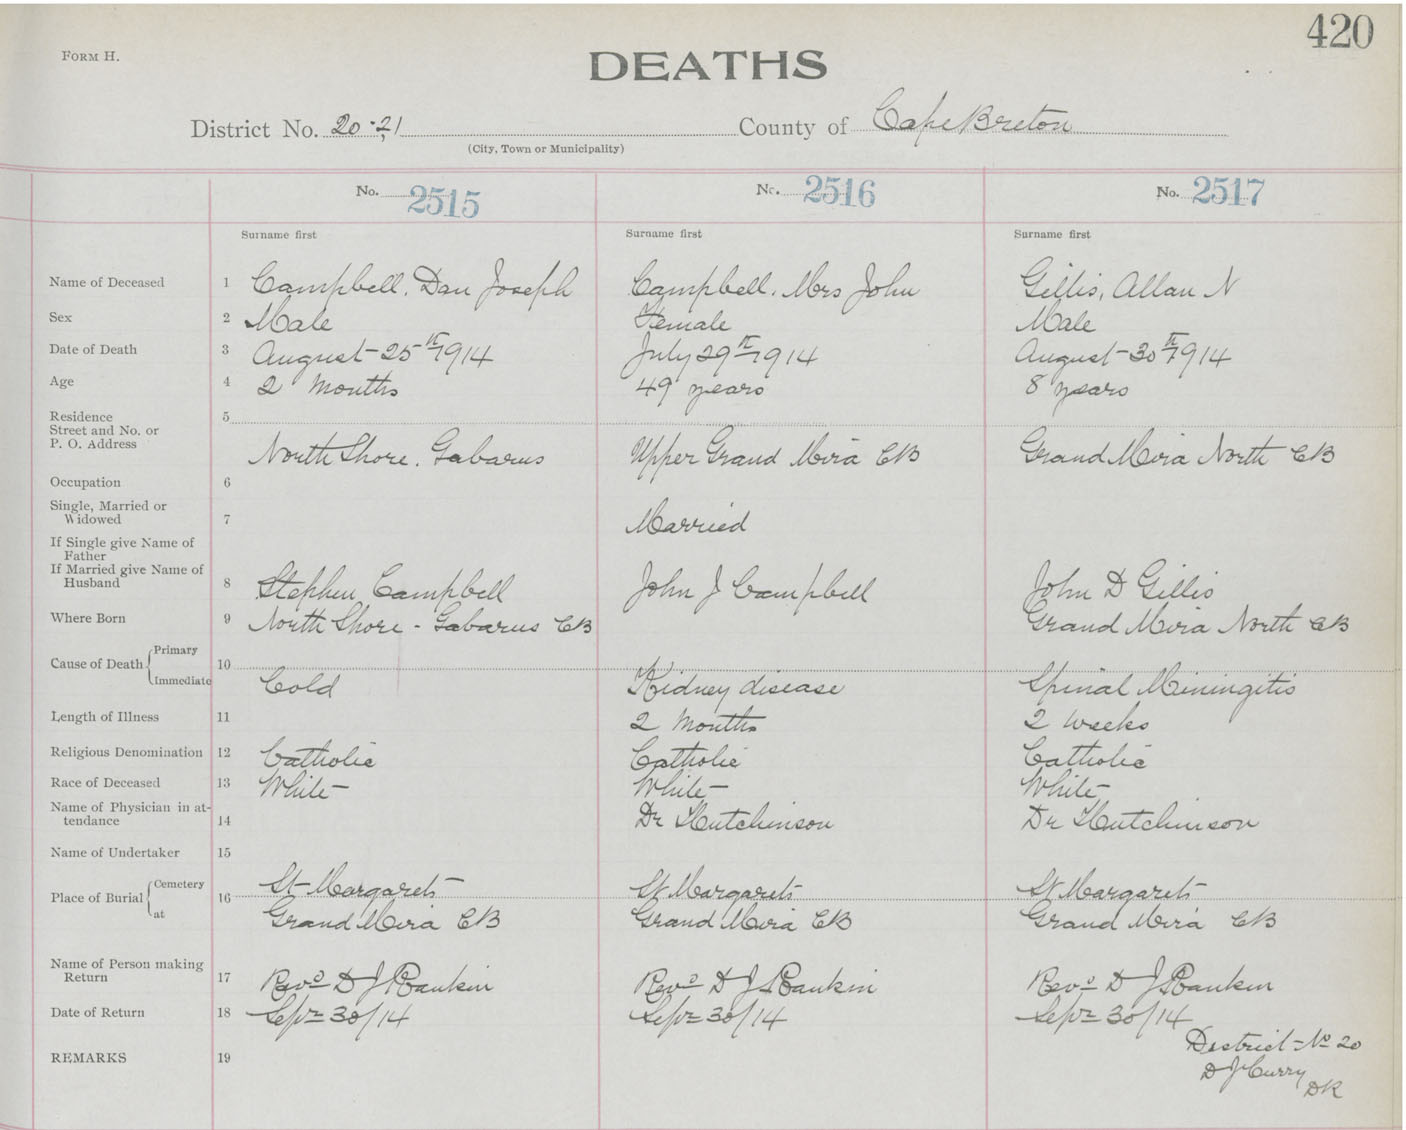 420
FORM H.
DEATHS
District No. 20-21 County of Cape Breton
(City, Town or Municipality)
No. 2515 No. 2516 No. 2517
Surname first Surname first Surname first
Name of Deceased 1 Campbell, Dan Joseph Campbell, Mrs John Gillis, Allan N
Sex 2 Male Female Male
Date of Death 3 August 25th 1914 July 29th 1914 August 30th 1914
Age 4 2 months 49 years 8 years
Residence 5
Street and No. or
P. O. Address North Shore, Gabarus Upper Grand Mira CB Grand Mira North CB
Occupation 6
Single, Married or
Widowed 7 Married
If Single give Name of
Father
If Married give Name of
Husband 8 Stephen Campbell John J Campbell John D Gillis
Where Born 9 North Shore - Gabarus CB Grand Mira North CB
Cause of Death Primary 10
Immediate Cold Kidney disease Spinal Miningitis
Length of Illness 11 2 months 2 weeks
Religious Denomination 12 Catholic Catholic Catholic
Race of Deceased 13 White White White
Name of Physician in at-
tendance 14 Dr Hutchinson Dr Hutchinson
Name of Undertaker 15
Place of Burial Cemetery 16 St Margarets St Margarets St Margarets
at Grand Mira CB Grand Mira CB Grand Mira CB
Name of Person making
Return 17 Revd D J Rankin Revd D J Rankin Revd D J Rankin
Date of Return 18 Sepr 30/14 Sepr 30/14 Sepr 30/14
REMARKS 19 District No 20
D J Curry
DR